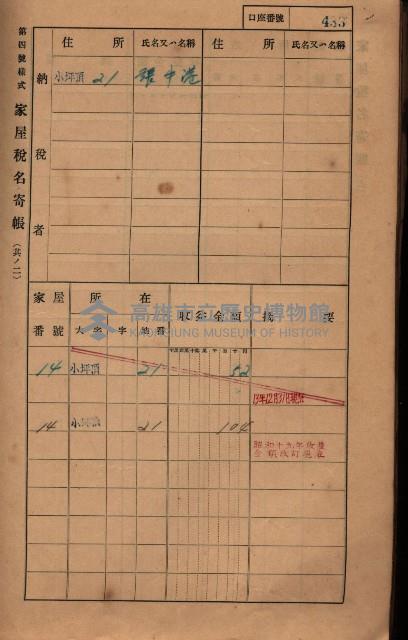 口座番號 433
第四號樣式 家屋稅名寄帳 (其ノ二)
納稅者
住所 氏名又ハ名稱 住所 氏名又ハ名稱
小坪頂 21 張中港
家屋番號 所在 收益金額 摘要
大字 字 地番
14 小坪頂 21 52
14 小坪頂 21 104
昭和十九年收益
金額改訂現在
高雄市立歷史博物館
KAOHSIUNG MUSEUM OF HISTORY